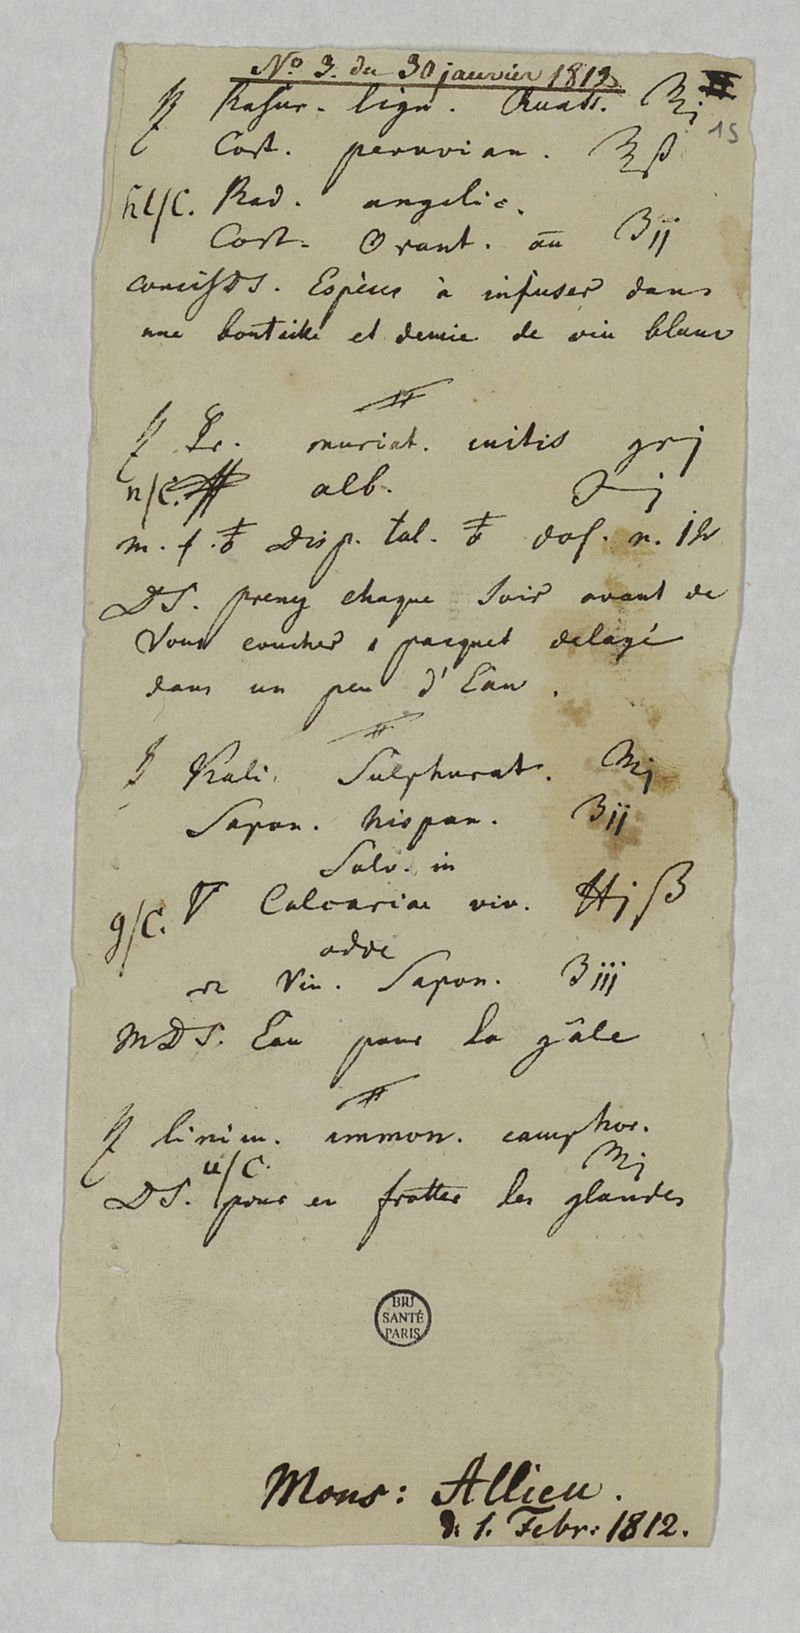 No. 3. du 30 janvier 1812
15
℞ Rasur. lign. Quass. ℥j
Cort. peruvian. ℥ß
hl/C. Rad. angelic.
Cort. Orant. aa ʒij
concis DS. Espèces à infuser dans
une bouteille et demie de vin blanc
#
℞ muriat. mitis grj
n/C. alb. ℈j
m. f. disp. tal. dos. n.
DS. prenez chaque Soir avant de
Vous coucher 1 pacquet delayé
dans un peu d'Eau.
#
℞ Kali Sulphurat. ℥j
Sapon. hispan. ʒij
Solv. in
g/C. Calcariae viv. ℔jß
adde
Vin. Sapon. ʒiij
MDS. Eau pour la gâle
#
℞ linim. ammon. camphor.
u/C. ℥j
DS. pour en frotter les glandes
BIU
SANTÉ
PARIS
Mons: Allieu.
d. 1. Febr: 1812.